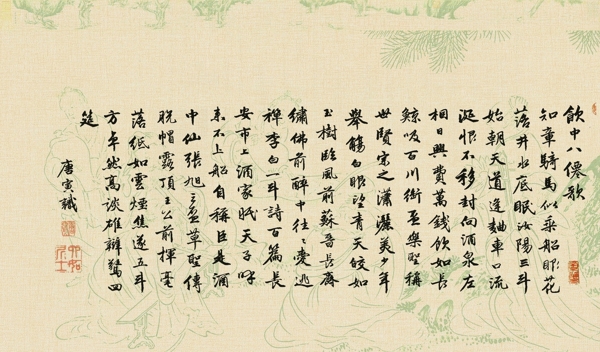 飲中八僊歌
知章騎馬似乘船眼花
落井水底眠汝陽三斗
始朝天道逢麯車口流
涎恨不移封向酒泉左
相日興費萬錢飲如長
鯨吸百川銜盃樂聖稱
世賢宗之瀟灑美少年
舉觴白眼望青天皎如
玉樹臨風前蘇晉長齋
繡佛前醉中往〻愛逃
禪李白一斗詩百篇長
安市上酒家眠天子呼
來不上船自稱臣是酒
中仙張旭三盃草聖傳
脫帽露頂王公前揮毫
落紙如雲煙焦遂五斗
方卓然高談雄辯驚四
筵
唐寅識
六如居士